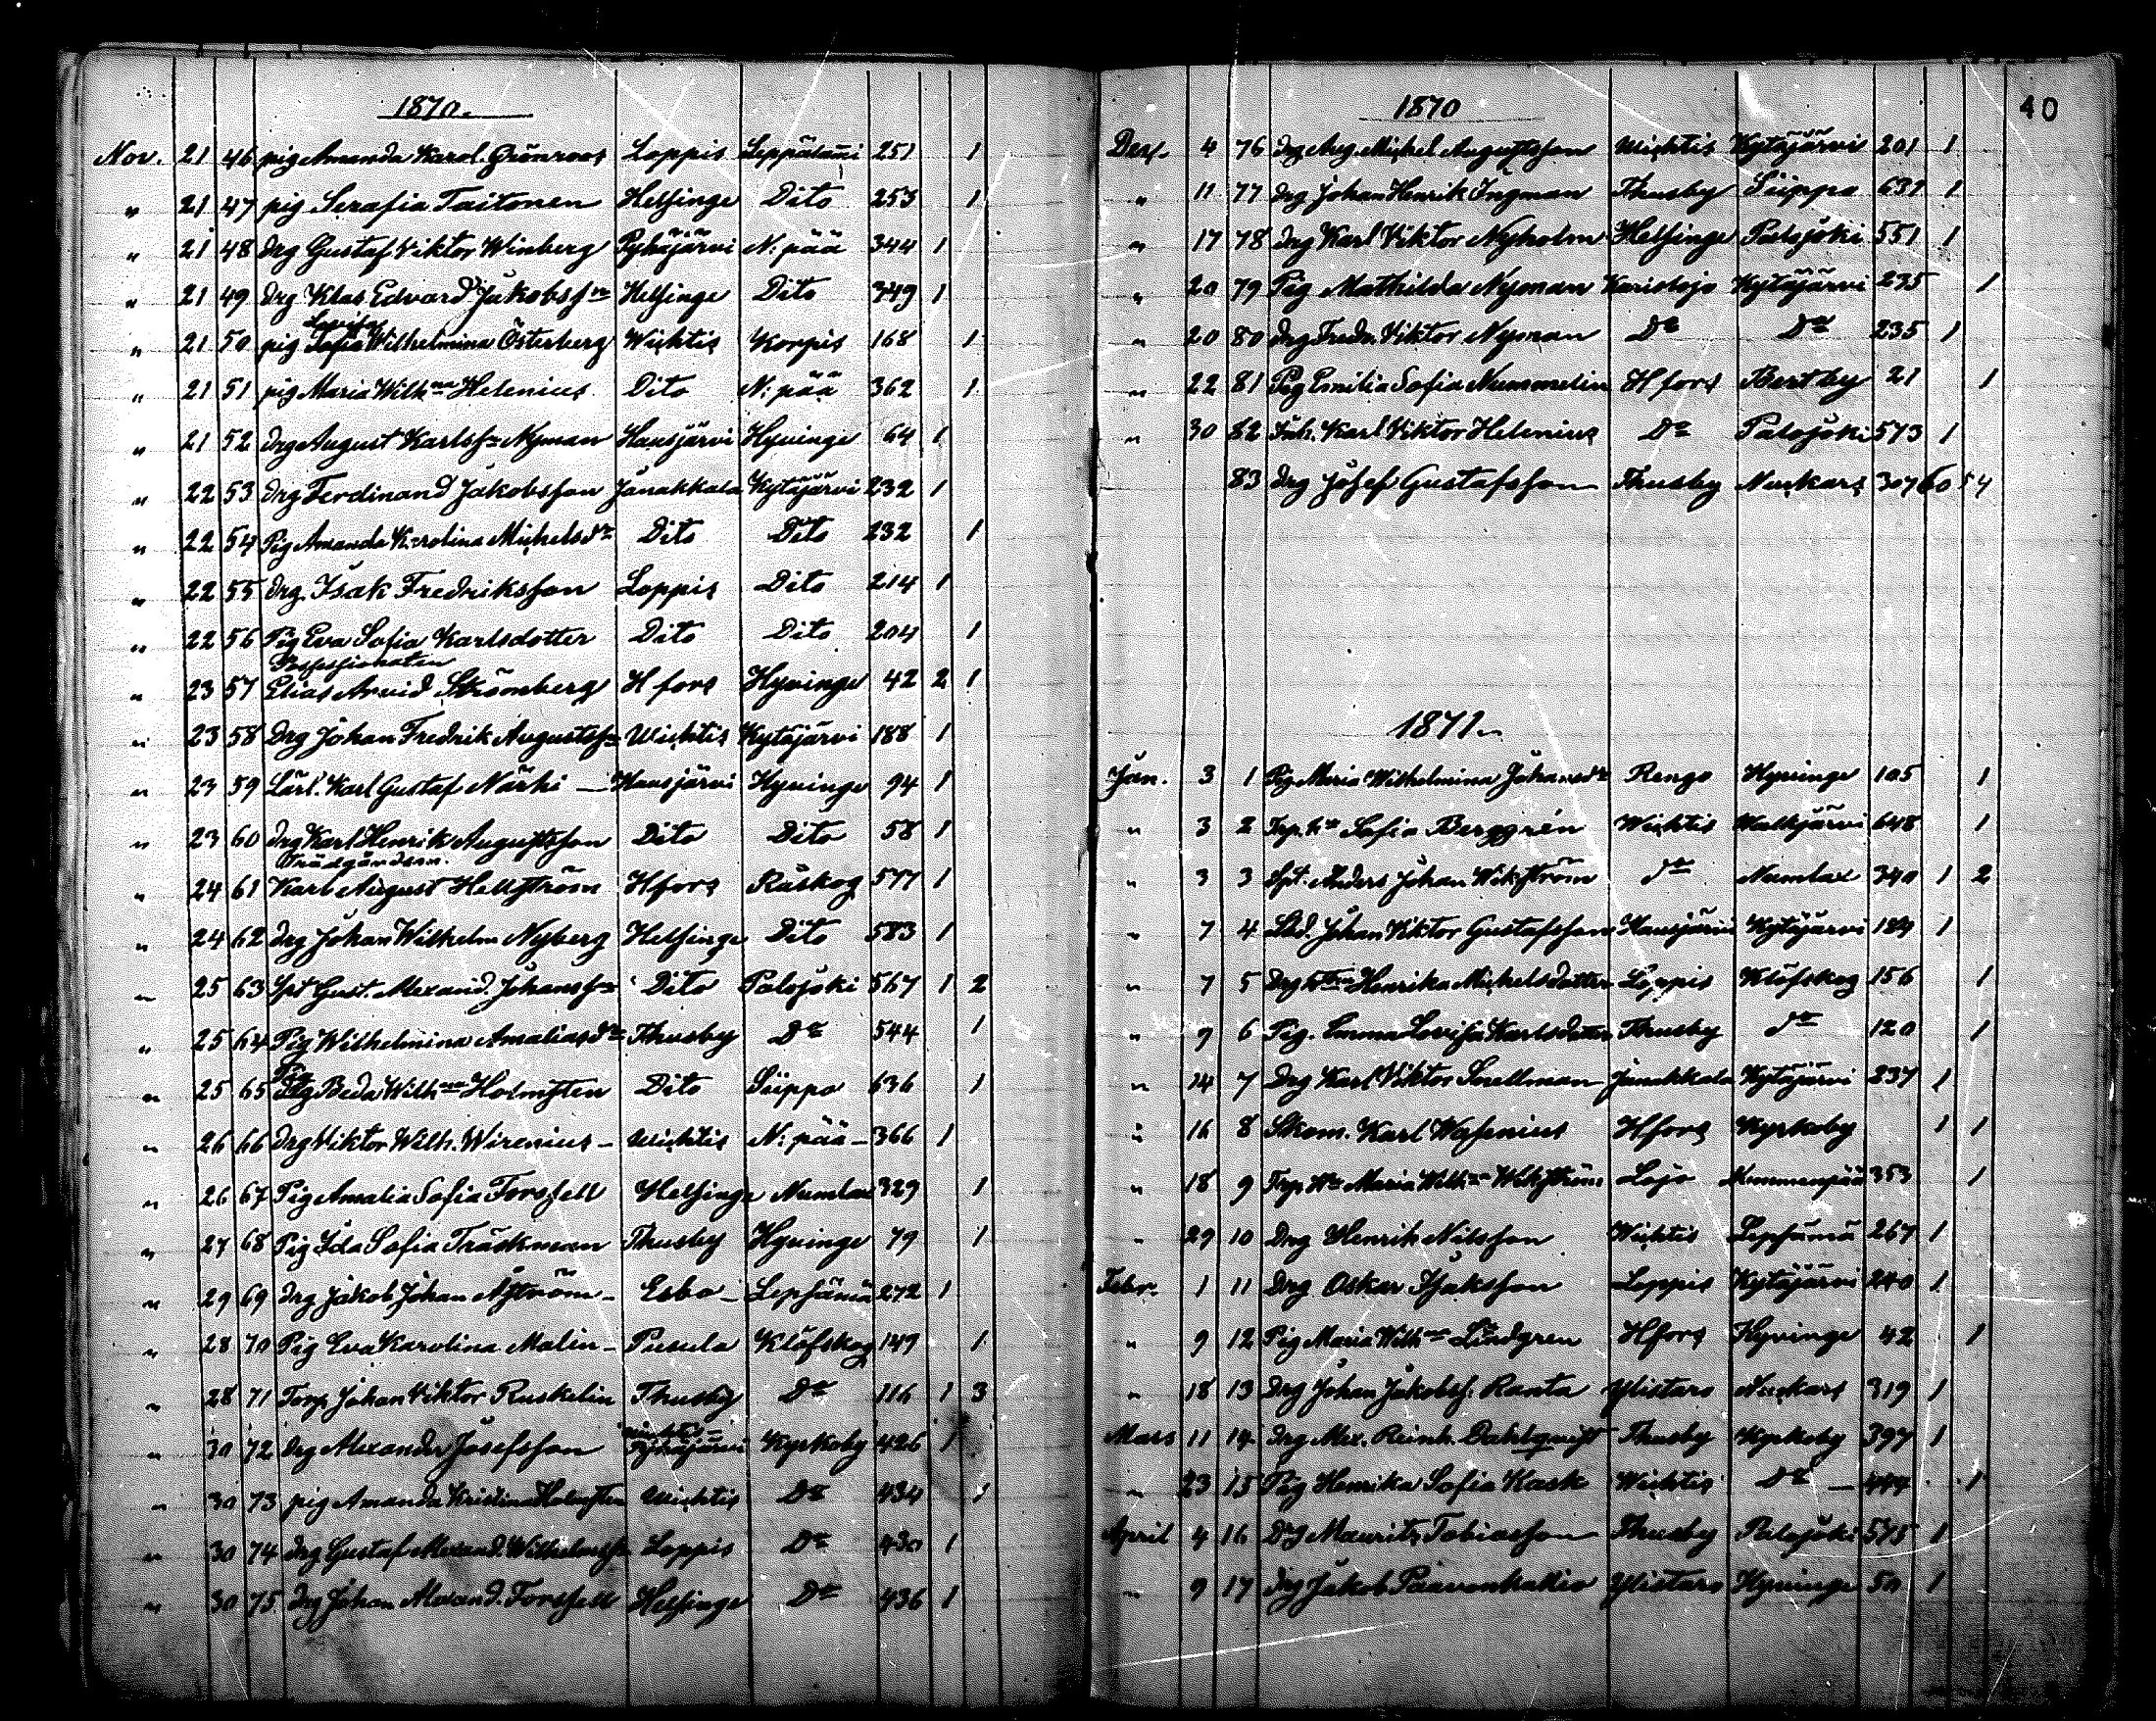 1870.
Nov. 21 46 pig Amanda Karol. Grönroos Loppis Leppälami 251 1
" 21 47 pig Serafia Taitonen Helsinge Dito 253 1
" 21 48 drg Gustaf Viktor Winberg Pyhäjärvi N: pää 344 1
" 21 49 drg Klas Edvard Jakobsson Helsinge Dito 349 1
Lovisa
" 21 50 pig Sofia Wilhelmina Österberg Wichtis Korpis 168 1
" 21 51 pig Maria Wilhna Helenius Dito N: pää 362 1
" 21 52 drg August Karlsfn Nyman Hausjärvi Hyvinge 64 1
" 22 53 drg Ferdinand Jakobsson Janakkala Kytäjärvi 232 1
" 22 54 Pig Amanda Karolina Michelsdr Dito Dito 232 1
" 22 55 drg. Isak Fredriksson Loppis Dito 214 1
" 22 56 Pig Eva Sofia Karlsdotter Dito Dito 204 1
Possessionaten
" 23 57 Elias Arvid Strömberg H fors Hyvinge 42 2 1
" 23 58 Drg Johan Fredrik Augustsfn Wichtis Kytäjärvi 188 1
" 23 59 Lärl. Karl Gustaf Närhi Hausjärvi Hyvinge 94 1
" 23 60 drg Karl Henrik Augustsson Dito Dito 58 1
Trädgårdsm.
" 24 61 Karl August Hellström Hfors Råskog 577 1
" 24 62 drg Johan Wilhelm Nyberg Helsinge Dito 583 1
" 25 63 Spt Gust. Alexand. Johansfn Dito Palojoki 567 1 2
" 25 64 Pig Wilhelmina Amaliasdr Thusby Do 544 1
" 25 65 Pig Beda Wilhna Holmsten Dito Siippo 636 1
" 26 66 drg Viktor Wilh. Wirenius - Wichtis N: pää - 366 1
" 26 67 Pig Amalia Sofia Forssell Helsinge Numlax 329 1
" 27 68 Pig Ida Sofia Träskman Thusby Hyvinge 79 1
" 29 69 drg Jakob Johan Nyström - Esbo - Lepsämä 272 1
" 28 70 Pig Eva Karolina Malin - Pusula Klöfskog 149 1
" 28 71 Torp Johan Viktor Ruskelin Thusby Do 116 1 3
Wichtis
" 30 72 drg Alexander Josefsson Pyhäjärvi Kyrkoby 426 1
" 30 73 pig Amanda Kristina Holmsten Wichtis Do 434 1
" 30 74 drg Gustaf Alexand. Wilhelmsfn Loppis Do 430 1
" 30 75 drg Johan Alexand. Forssell Helsinge Do 436 1
1870 40
Dec. 4 76 drg Aug. Michel Augustsson Wichtis Kytäjärvi 201 1
" 11 77 drg Johan Henrik Ingman Thusby Siippo 631 1
" 17 78 drg Karl Viktor Nyholm Helsinge Palojoki 551 1
" 20 79 Pig Mathilda Nyman Karislojo Kytäjärvi 235 1
" 20 80 drg Fredr. Viktor Nyman Do Do 235 1
" 22 81 Pig Emilia Sofia Nummelin H fors Bertby 21 1
" 30 82 Inh. Karl Viktor Helenius Do Palojoki 573 1
83 Drg Josef Gustafsson Thusby Nuckars 307 60 54
1871.
Jan. 3 1 Pig Maria Wilhelmina Johansdr Rengo Hyvinge 105 1
" 3 2 Sofia Berggrén Wichtis Walkjärvi 648 1
" 3 3 Spt. Anders Johan Wikström do Numlax 340 1 2
" 7 4 Johan Viktor Gustafsson Hausjärvi Kytäjärvi 189 1
" 7 5 Henrika Michelsdotter Loppis Klöfskog 156 1
" 9 6 Pig. Emma Lovisa Karlsdotter Thusby do 120 1
" 14 7 Drg Karl Viktor Snellman Janakkala Kytäjärvi 237 1
" 16 8 Skom. Karl Wasenius Hfors Kyrkoby 1 1
" 18 9 Maria Wilhna Wikström Lojo Nummenpää 353 1
" 29 10 Drg Henrik Nilsson Wichtis Lepsämä 267 1
Febr. 1 11 Drg Oskar Isaksson Loppis Kytäjärvi 240 1
" 9 12 Pig Maria Wilhna Lindgren Hfors Hyvinge 42 1
" 18 13 Drg Johan Jakobsf. Ranta Ylistaro Nuckars 319 1
Mars 11 14 drg Alex. Reinh. Dahlqvist Thusby Kyrkoby 397 1
" 23 15 Pig Henrika Sofia Kask Wichtis Do - 444 1
April 4 16 Drg Maurits Tobiasson Thusby Palojoki 575 1
" 9 17 drg Jakob Paavonkallio Ylistaro Hyvinge 50 1